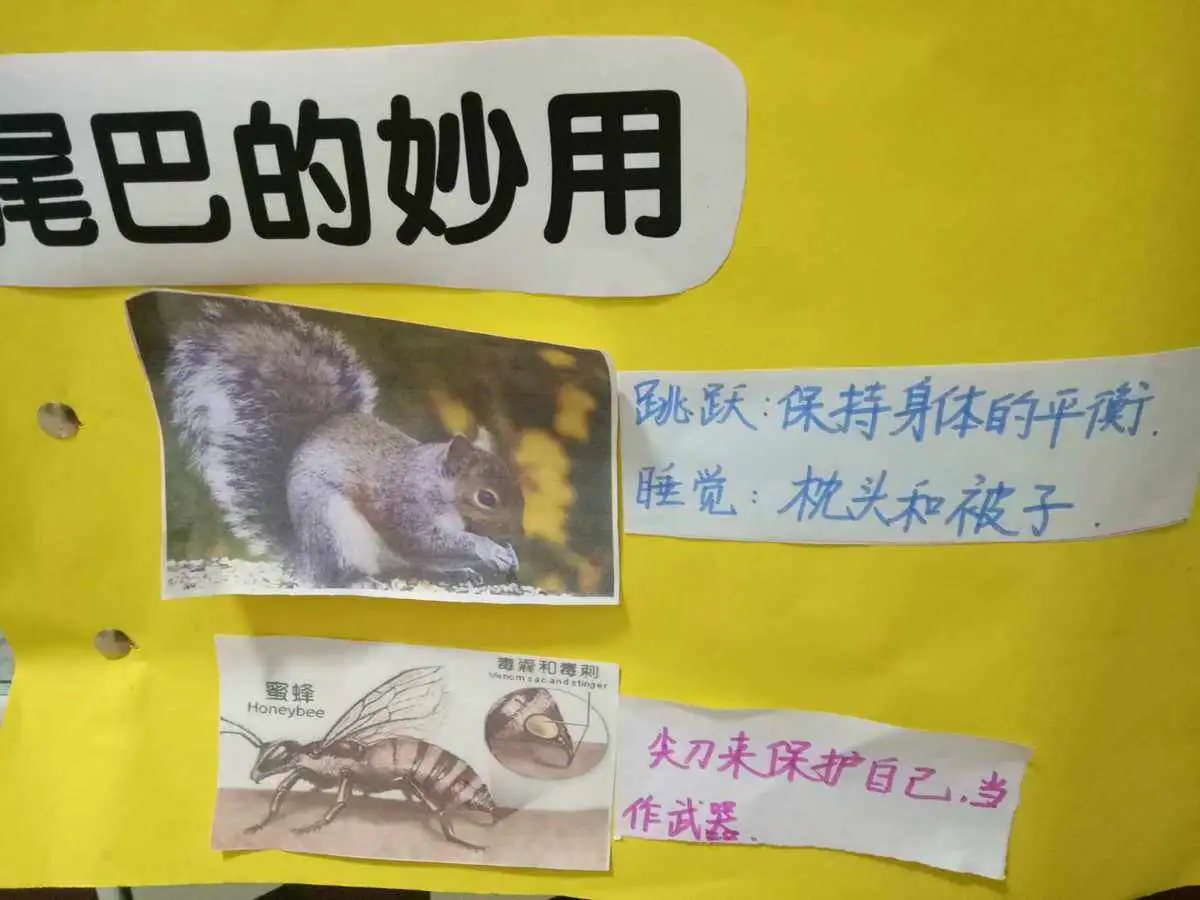 尾巴的妙用
跳跃:保持身体的平衡.
睡觉:枕头和被子.
毒囊和毒刺
Venom sac and stinger
蜜蜂
Honeybee
尖刀来保护自己.当
作武器.